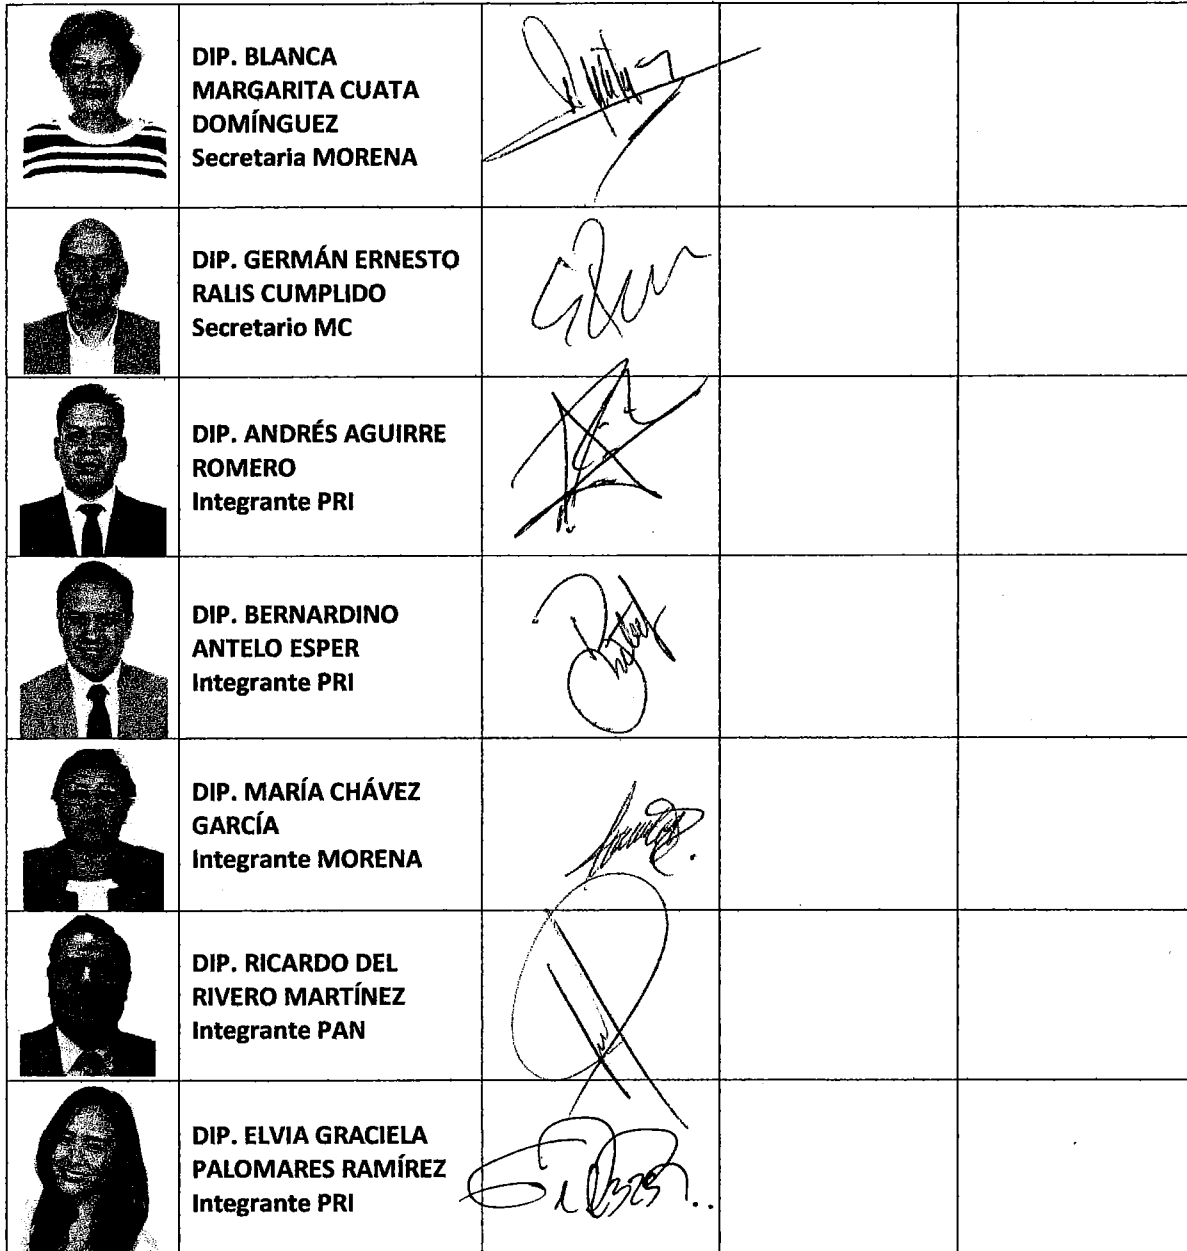 DIP. BLANCA
MARGARITA CUATA
DOMÍNGUEZ
Secretaria MORENA
DIP. GERMÁN ERNESTO
RALIS CUMPLIDO
Secretario MC
DIP. ANDRÉS AGUIRRE
ROMERO
Integrante PRI
DIP. BERNARDINO
ANTELO ESPER
Integrante PRI
DIP. MARÍA CHÁVEZ
GARCÍA
Integrante MORENA
DIP. RICARDO DEL
RIVERO MARTÍNEZ
Integrante PAN
DIP. ELVIA GRACIELA
PALOMARES RAMÍREZ
Integrante PRI